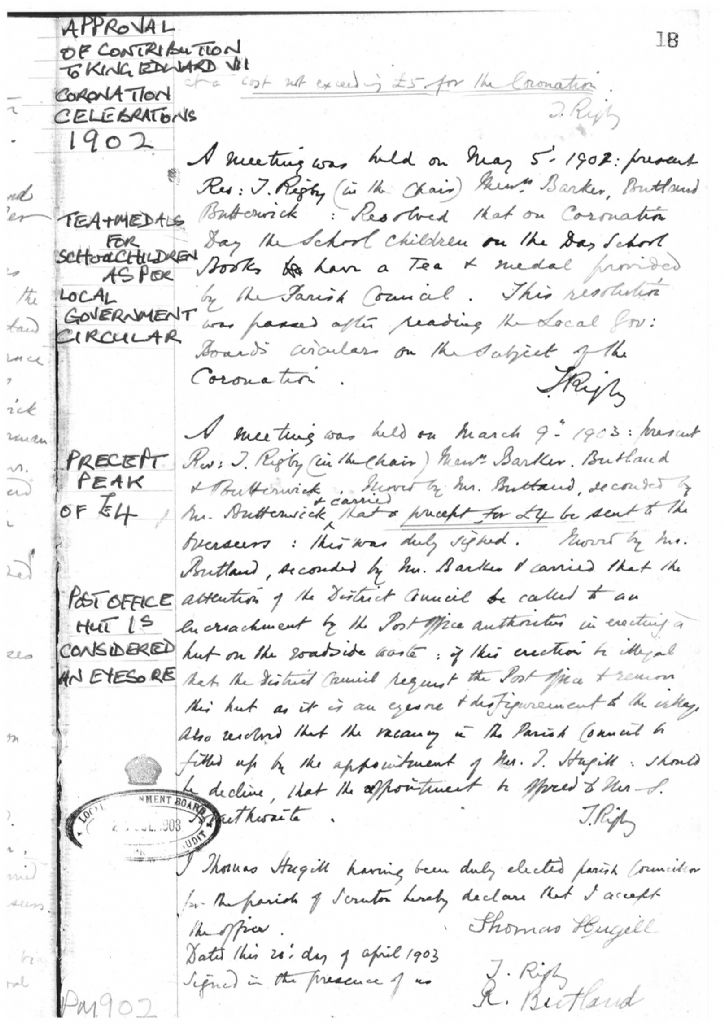 APPROVAL
OF CONTRIBUTION
TO KING EDWARD VII
CORONATION
CELEBRATONS
1902
18
at a cost not exceeding £5 for the Coronation.
T. Rigby
A meeting was held on May 5th 1902: present
Rev: T. Rigby (in the Chair) Messrs Barker, Butland
Butterwick : Resolved that on Coronation
Day the School Children on the Day School
Books have a Tea & medal provided
by the Parish Council. This resolution
was passed after reading the Local Gov:
Boards circulars on the subject of the
Coronation.
T. Rigby
TEA + MEDALS
FOR
SCHOOLCHILDREN
AS PER
LOCAL
GOVERNMENT
CIRCULAR
A meeting was held on March 9th 1903: present
Rev: T. Rigby (in the Chair) Messrs Barker. Butland
& Butterwick. Moved by Mr. Butland, seconded by
Mr. Butterwick & carried that a precept for £4 be sent to the
overseers : this was duly signed. Moved by Mr.
Butland, seconded by Mr. Barker & carried that the
attention of the District Council be called to an
encroachment by the Post Office authorities in erecting a
hut on the roadside waste : if this erection be illegal
that the District Council request the Post Office to remove
this hut as it is an eyesore & disfigurement to the village
Also resolved that the vacancy in the Parish Council be
filled up by the appointment of Mr. T. Hugill : should
he decline, that the appointment be offered to Mr. S.
T. Rigby
PRECEPT
PEAK
OF £4
POST OFFICE
HUT IS
CONSIDERED
AN EYESORE
LOC NMENT BOARD
1903
AUDIT
I Thomas Hugill having been duly elected parish Councillor
for the parish of Scruton hereby declare that I accept
the office.
Thomas Hugill
Dated this 20th day of april 1903
Signed in the presence of us
T. Rigby
R. Butland
PM1902